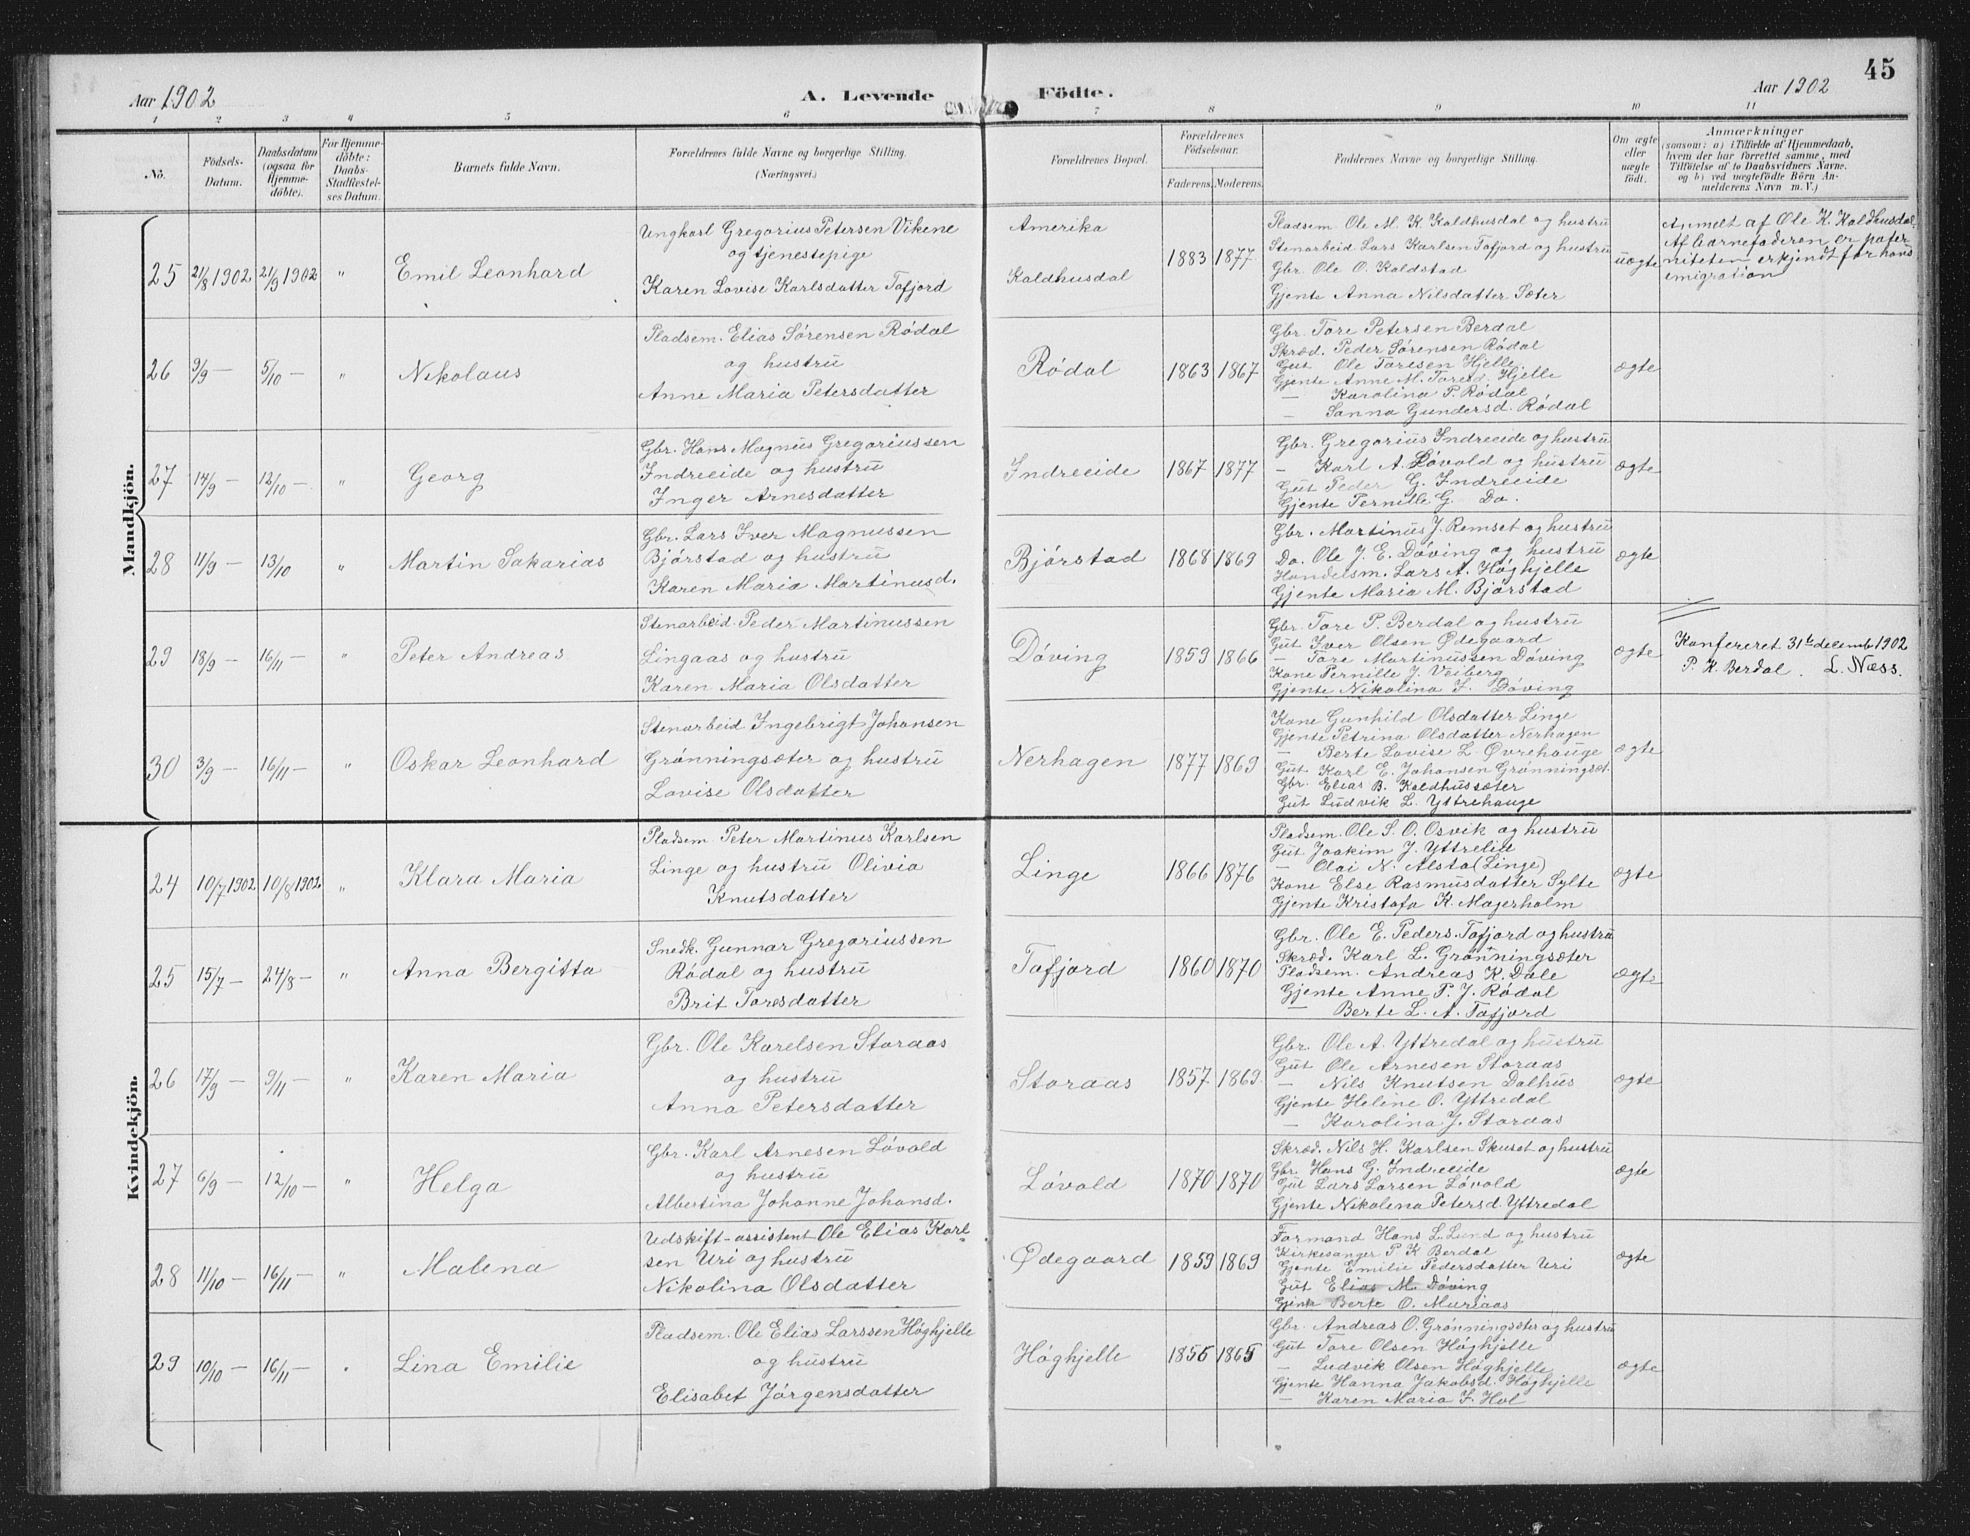 Aar 1902
A. Levende
Födte.
Aar 1902
45
1 2 3 4 5 6 7 8 9 10 11
No.
Födsels-
Datum.
Daabsdatum
(ogsaa for
Hjemme-
döbte).
For Hjemme-
döbte:
Daabs-
Stadfæstel-
ses Datum.
Barnets fulde Navn.
Forældrenes fulde Navne og borgerlige Stilling.
(Næringsvei.)
Forældrenes Bopæl.
Forældrenes
Födselsaar.
Faderens. Moderens.
Faddernes Navne og borgerlige Stilling.
Om ægte
eller
uægte
födt.
Anmærkninger
(saasom: a) i Tilfælde af Hjemmedaab,
hvem der har forrettet samme, med
Tilföielse af to Daabsvidners Navne.
og b) ved uægtefödte Börn An-
melderens Navn m. V.)
Mandkjön.
25 21/8 1902 21/9 1902 " Emil Leonhard
Ungkarl Gregorius Petersen Vikene
og tjenestepige
Karen Lovise Karlsdatter Tafjord
Amerika
Kaldhusdal
1883 1877
Pladsem. Ole M. K. Kaldhusdal og hustru
Stenarbeid Lars Karlsen Tafjord og hustru
Gbr. Ole O. Kaldstad
Gjente Anna Nilsdatter Sæter
uægte
Anmelt af Ole K. Kaldhusdal.
Af barnefaderen er pater-
niteten erkjendt før hans
emigration
26 9/9 — 5/10 — " Nikolaus
Pladsem. Elias Sørensen Rödal
og hustru
Anne Maria Petersdatter
Rödal
1863 1867
Gbr. Tore Petersen Berdal
Skræd. Peder Sørensen Rödal
Gut Ole Toresen Hjelle
Gjente Anne M. Toresd. Hjelle
— Karolina P. Rödal
— Sanna Gundersd. Rödal
ægte
27 14/9 — 12/10 — " Georg
Gbr. Hans Magnus Gregoriussen
Indreeide og hustru
Inger Arnesdatter
Indreeide
1867 1877
Gbr. Gregorius Indreeide og hustru
— Karl A. Lövold og hustru
Gut Peder G. Indreeide
Gjente Pernille G. Do.
ægte
28 11/9 — 13/10 " Martin Sakarias
Gbr. Lars Iver Magnussen
Bjørstad og hustru
Karen Maria Martinusd.
Bjørstad
1868 1869
Gbr. Martinus J. Remset og hustru
Do. Ole J. E. Döving og hustru
Handelsm. Lars A. Höghjelle
Gjente Maria M. Bjørstad
ægte
29 18/9 — 16/11 — " Peter Andreas
Stenarbeid. Peder Martinussen
Lingaas og hustru
Karen Maria Olsdatter
Döving
1859 1866
Gbr. Tore P. Berdal og hustru
Gut Iver Olsen Ødegaard
— Tore Martinussen Döving
Kone Pernille J. Veiberg
Gjente Nikolina I. Döving
ægte
Konfereret 31te decemb 1902
P. K. Berdal. L. Næss.
30 3/9 — 16/11 — " Oskar Leonhard
Stenarbeid Ingebrigt Johansen
Grönningsæter og hustru
Lovise Olsdatter
Nerhagen
1877 1869
Kone Gunhild Olsdatter Linge
Gjente Petrina Olsdatter Nerhagen
— Berte Lovise L. Øvrehauge
Gut Karl E. Johansen Grönningsæt.
Gbr. Elias B. Kaldhussæter
Gut Ludvik L. Yttrehauge
ægte
Kvindekjön.
24 10/7 1902 10/8 1902 " Klara Maria
Pladsem. Peter Martinus Karlsen
Linge og hustru Olivia
Knutsdatter
Linge
1866 1876
Pladsem. Ole S. O. Osvik og hustru
Gut Joakim J. Yttrelid
— Olai N. Alsta (Linge)
Kone Else Rasmusdatter Sylte
Gjente Kristofa K. Magerholm
ægte
25 15/7 — 24/8 — " Anna Bergitta
Snedk. Gunnar Gregoriussen
Rödal og hustru
Brit Toresdatter
Tafjord
1860 1870
Gbr. Ole E. Peders. Tafjord og hustru
Skræd. Karl L. Grönningsæter
Pladsem. Andreas K. Dale
Gjente Anne P. J. Rödal
— Berte L. A. Tafjord
ægte
26 17/9 — 9/11 — " Karen Maria
Gbr. Ole Karelsen Storaas
og hustru
Anna Petersdatter
Storaas
1857 1869
Gbr. Ole A. Yttredal og hustru
Gut Ole Arnesen Storaas
— Nils Knutsen Dalhus
Gjente Heline O. Yttredal
— Karolina J. Storaas
ægte
27 6/9 — 12/10 — " Helga
Gbr. Karl Arnesen Lövold
og hustru
Albertina Johanne Johansd.
Lövold
1870 1870
Skræd. Nils H. Karlsen Skuset og hustru
Gbr. Hans G. Indreeide
Gut Lars Larsen Lövold
Gjente Nikolina Petersd. Yttredal
ægte
28 11/10 — 16/11 — " Malena
Udskift-assistent Ole Elias Karl-
sen Uri og hustru
Nikolina Olsdatter
Ødegaard
1859 1869
Formand Hans L. Lund og hustru
Kirkesanger P. K. Berdal
Gjente Emilie Pedersdatter Uri
Gut Elias M. Döving
Gjente Berte O. Muriaas
ægte
29 10/10 — 16/11 — " Lina Emilie
Pladsem. Ole Elias Larssen Höghjelle
og hustru
Elisabet Jörgensdatter
Höghjelle
1865
Gbr. Andreas O. Grönningsæter og hustru
Gut Tore Olsen Höghjelle
— Ludvik Olsen Höghjelle
Gjente Hanna Jakobsd. Höghjelle
— Karen Maria I. Hol
ægte